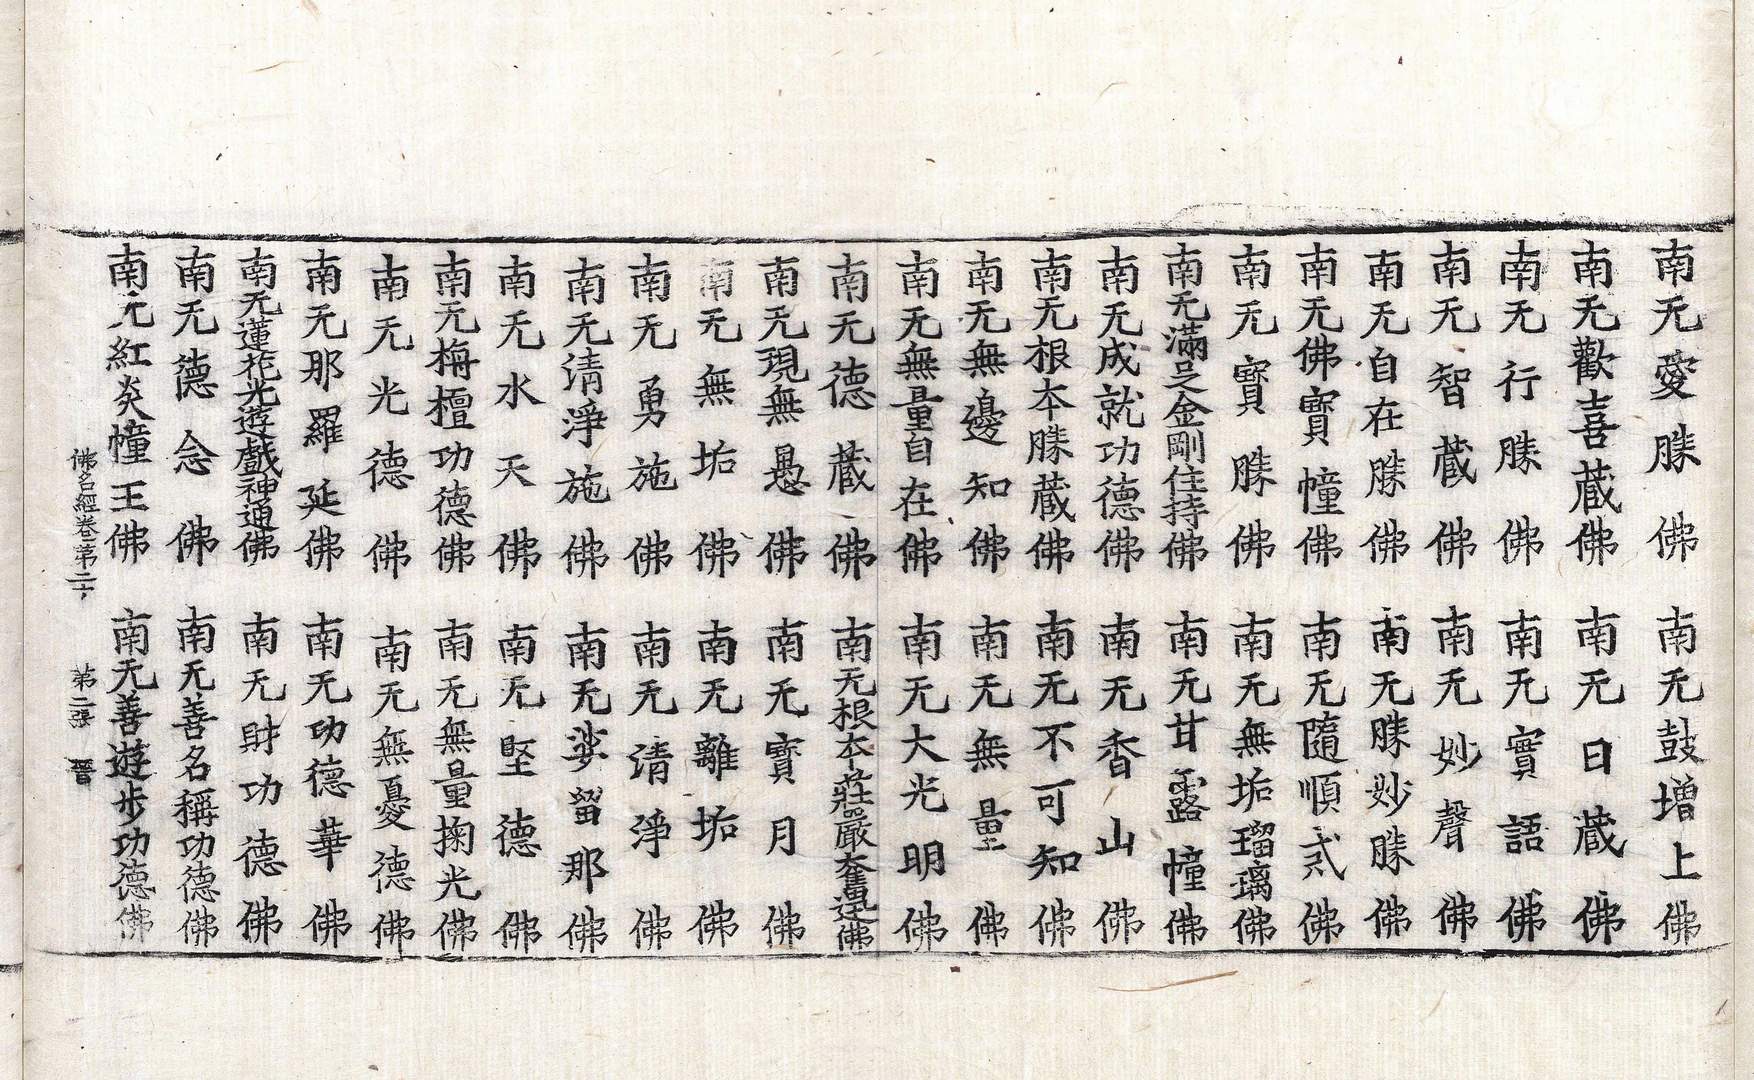 南无愛勝佛 南无鼓增上佛
南无歡喜蔵佛 南无日蔵佛
南无行勝佛 南无實語佛
南无智蔵佛 南无妙聲佛
南无自在勝佛 南无勝妙勝佛
南无佛寶幢佛 南无隨順貳佛
南无寶勝佛 南无無垢瑠璃佛
南无滿足金剛住持佛 南无甘露幢佛
南无成就功德佛 南无香山佛
南无根本勝蔵佛 南无不可知佛
南无無邊知佛 南无無量佛
南无無量自在佛 南无大光明佛
南无德蔵佛 南无根本莊嚴奮迅佛
南无現無愚佛 南无寶月佛
南无無垢佛 南无離垢佛
南无勇施佛 南无清淨佛
南无清淨施佛 南无娑留那佛
南无水天佛 南无堅德佛
南无栴檀功德佛 南无無量掬光佛
南无光德佛 南无無憂德佛
南无那羅延佛 南无功德華佛
南无蓮花光遊戲神通佛 南无財功德佛
南无德念佛 南无善名稱功德佛
南无紅炎幢王佛 南无善遊步功德佛
佛名經卷第二十 第二張